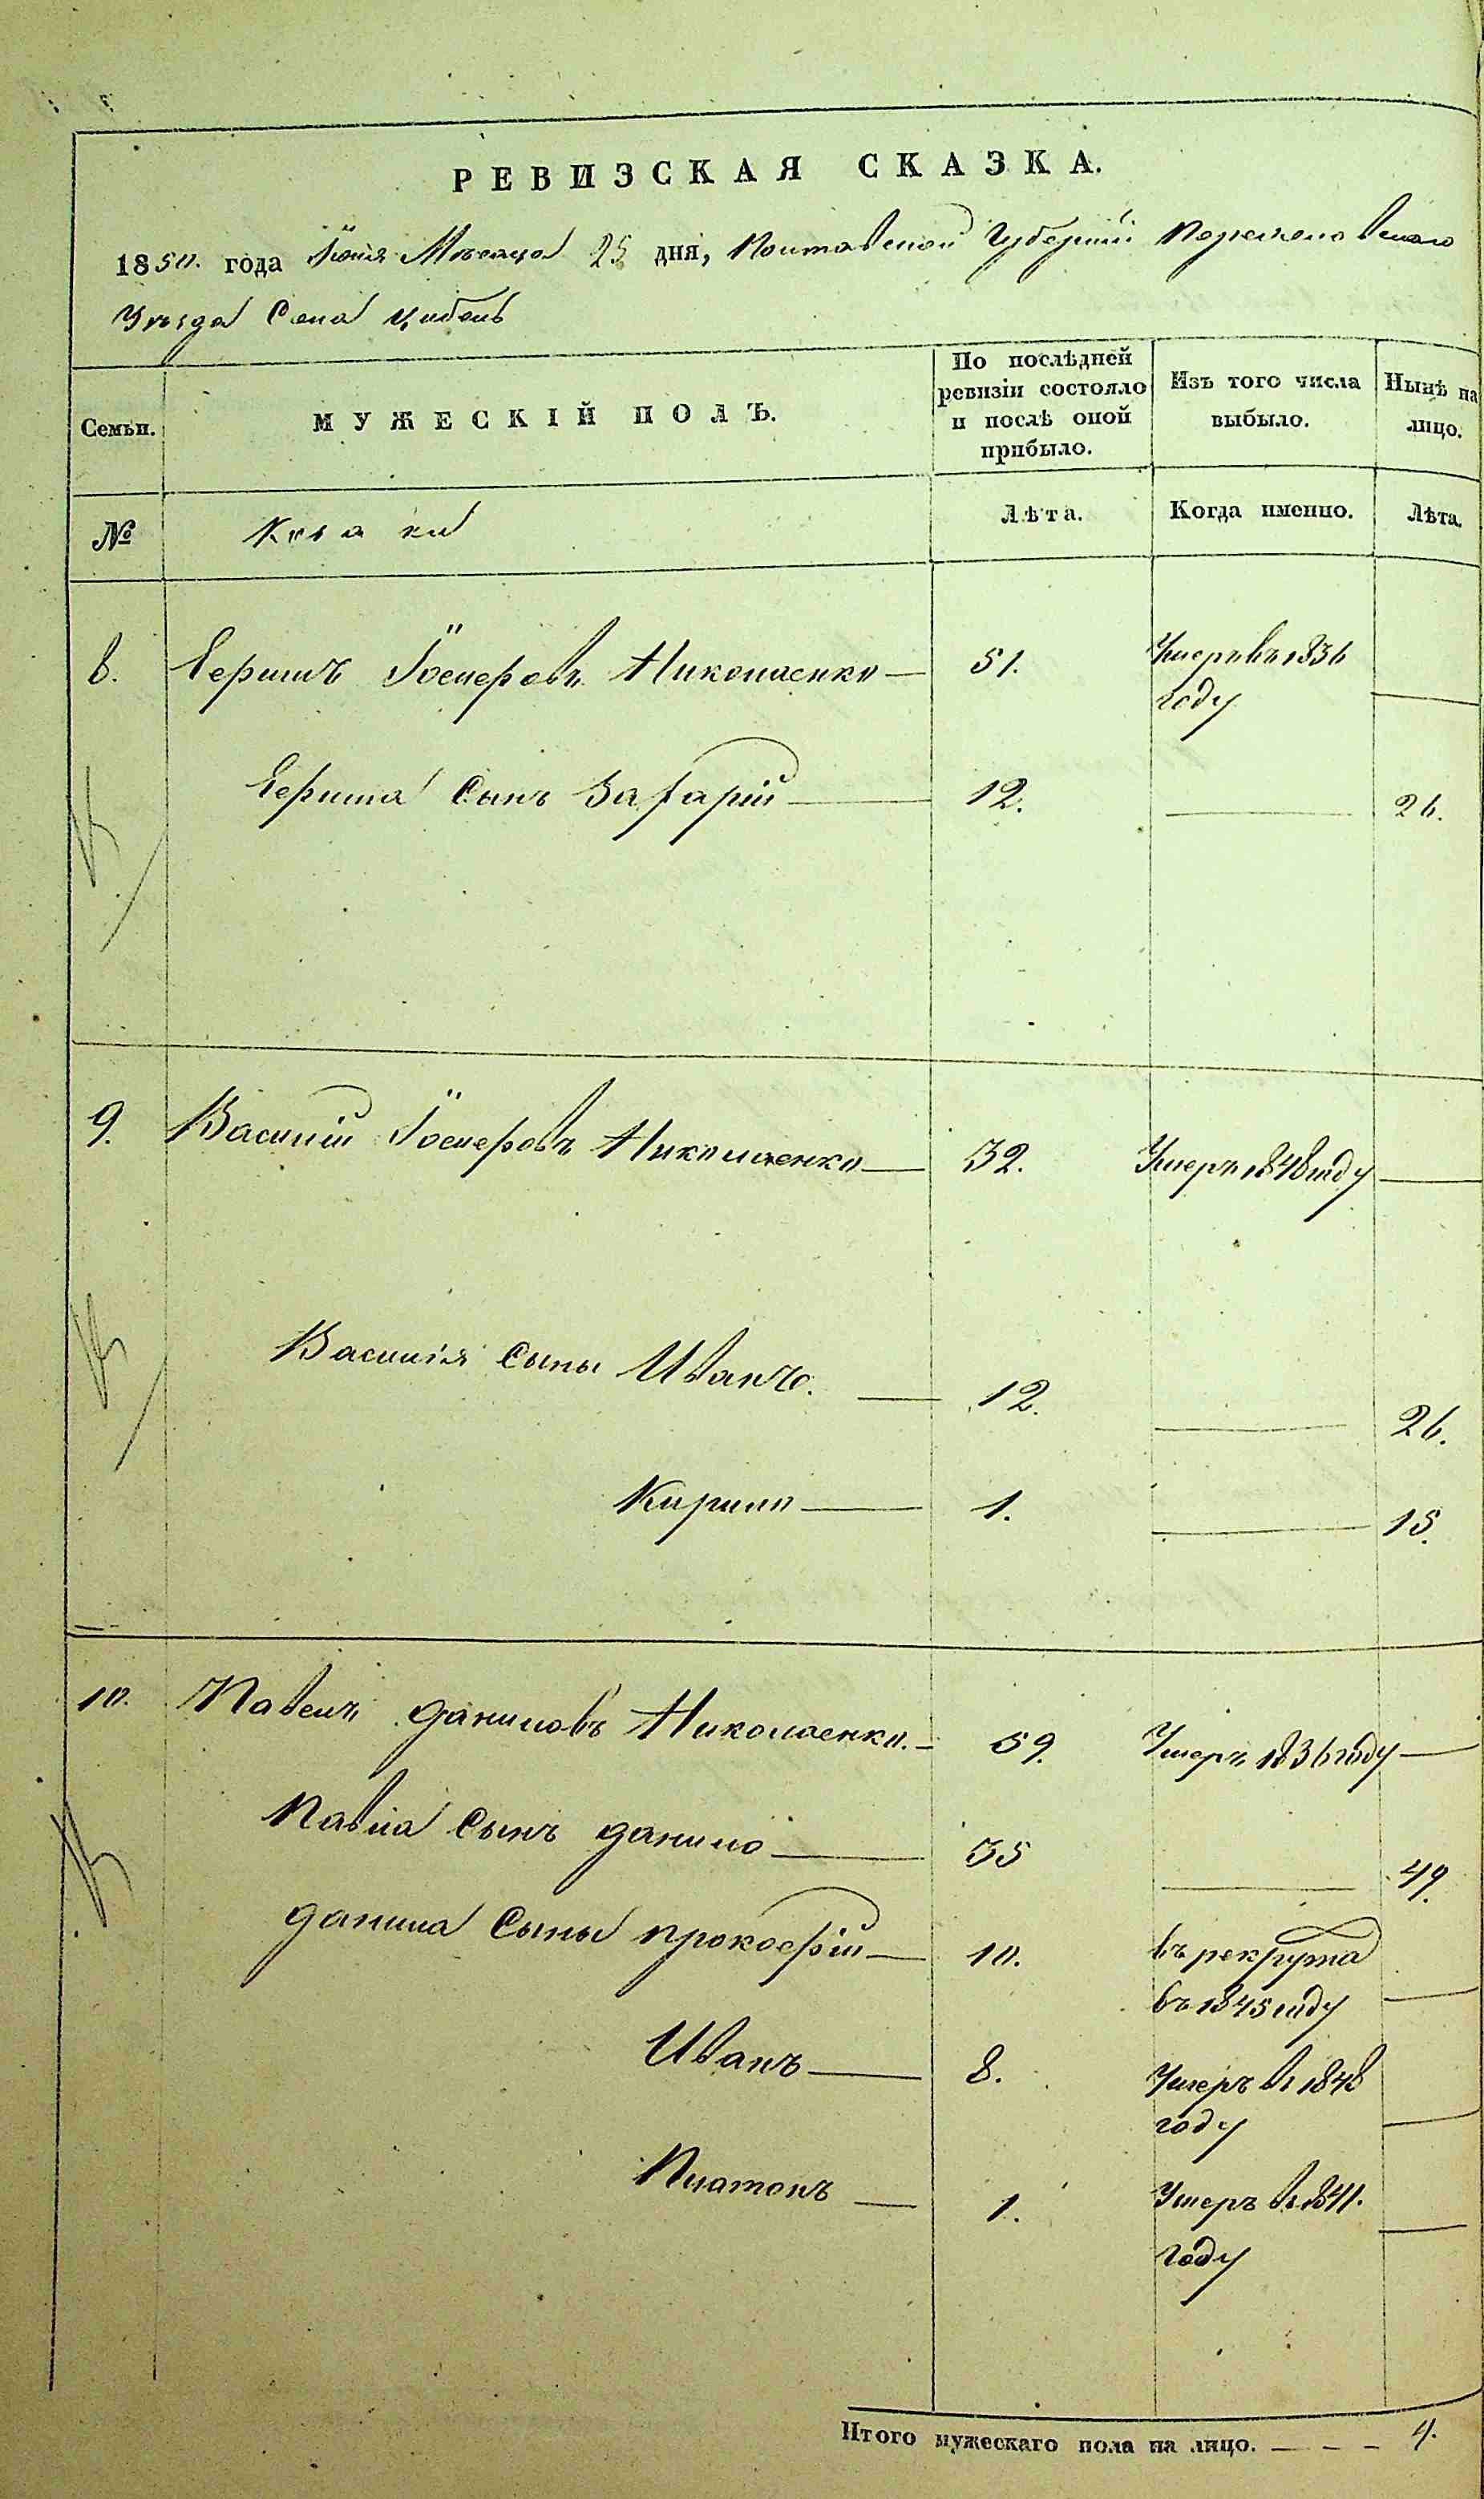 РЕВИЗСКАЯ СКАЗКА.
1850. года Іюня Мѣсяца 25 дня, Полтавской Губерніи Переяславскаго
Уѣзда Села Цибель
Семьи.
МУЖЕСКІЙ ПОЛЪ.
По послѣдней ревизіи состояло и послѣ оной прибыло.
Изъ того числа выбыло.
Нынѣ на лицо.
№
Козаки
Лѣта.
Когда именно.
Лѣта.
8. Ефимъ Іосифовъ Николаенко — 51. Умеръ въ 1836
году —
Ефима Сынъ Захарій — 12. — 26.
9. Василій Іосифовъ Николаенко — 32. Умеръ 1848 году —
Василія Сыны Иванъ. — 12. — 26.
Кирило — 1. — 15.
10. Павелъ Даниловъ Николаенко. — 59. Умеръ 1836 году —
Павла Сынъ Данило — 35 — 49.
Данила Сыны Прокофій — 10. въ рекрута
въ 1845 году —
Иванъ — 8. Умеръ въ 1848
году —
Платонъ — 1. Умеръ въ 1841.
году —
Итого мужескаго пола на лицо. — — — 4.